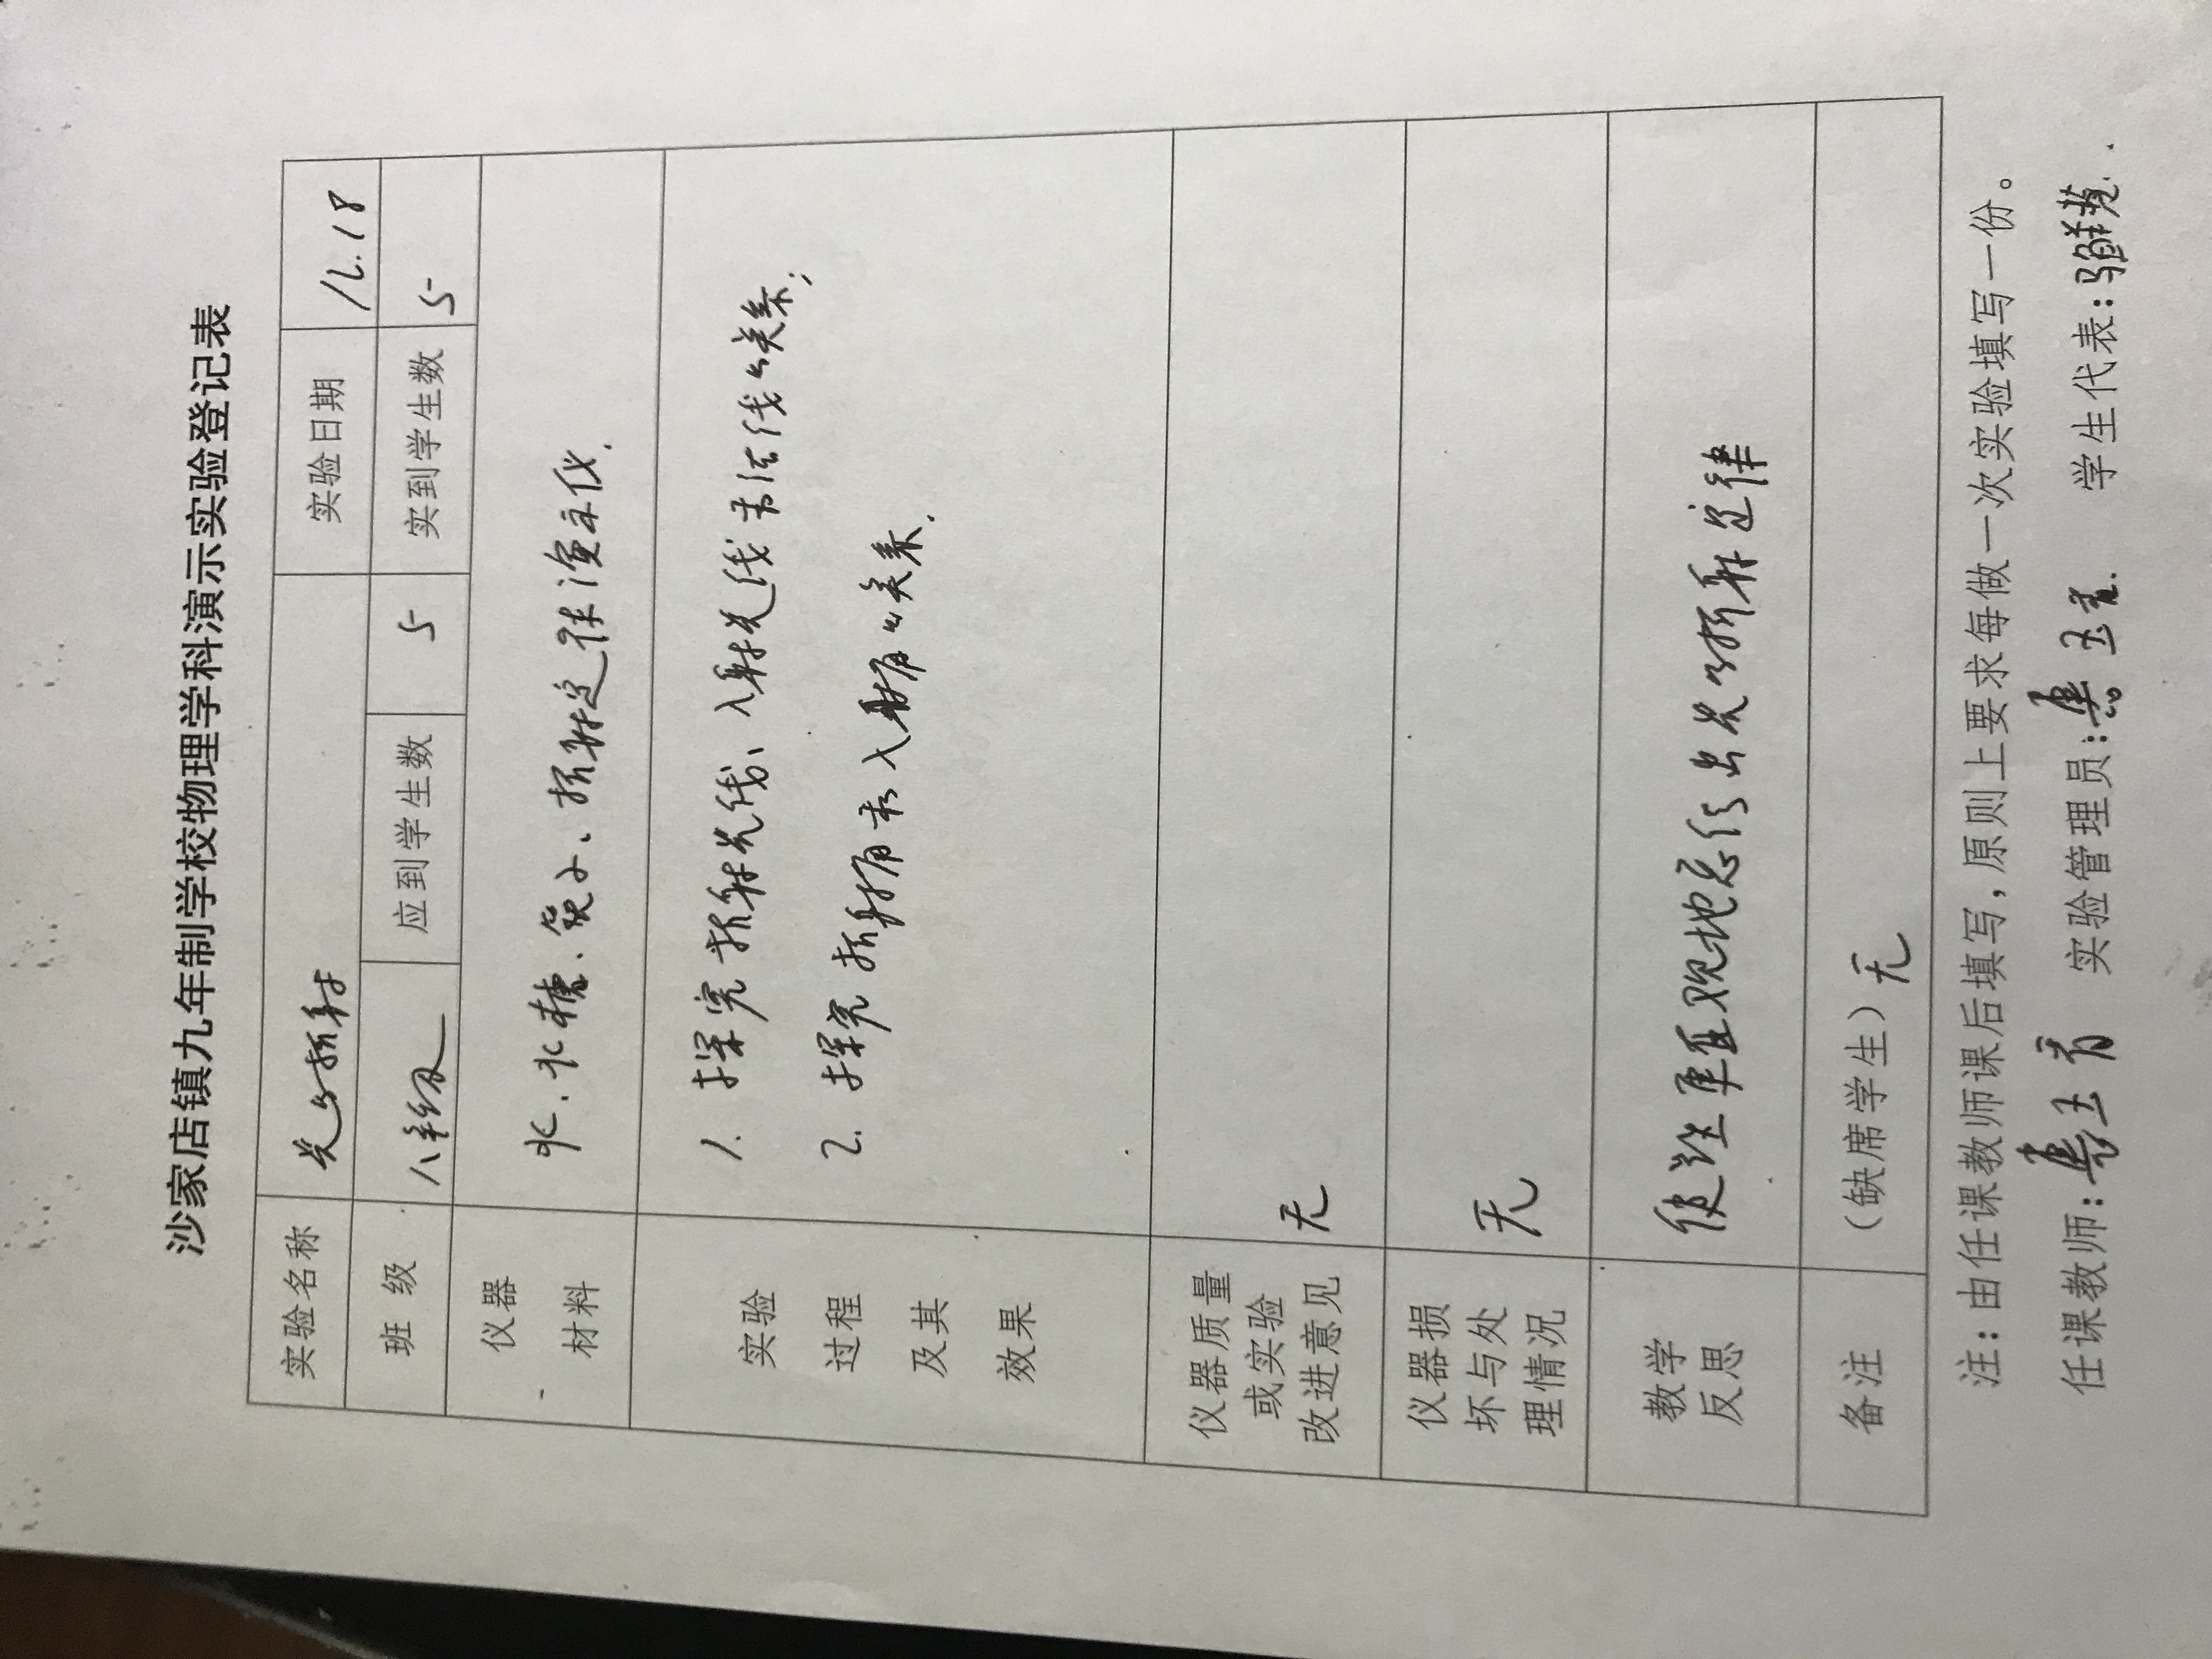 沙家店镇九年制学校物理学科演示实验登记表
实验名称 光的折射 实验日期 12.18
班级 八年级 应到学生数 5 实到学生数 5
仪器材料 水、水槽、筷子、折射定律演示仪.
实验过程及其效果
1. 探究折射光线、入射光线与法线的关系;
2. 探究折射角与入射角的关系.
仪器质量或实验改进意见 无
仪器损坏与处理情况 无
教学反思 使学生直观地总结出光的折射定律
备注 (缺席学生) 无
注:由任课教师课后填写,原则上要求每做一次实验填写一份。
任课教师: 实验管理员: 学生代表: